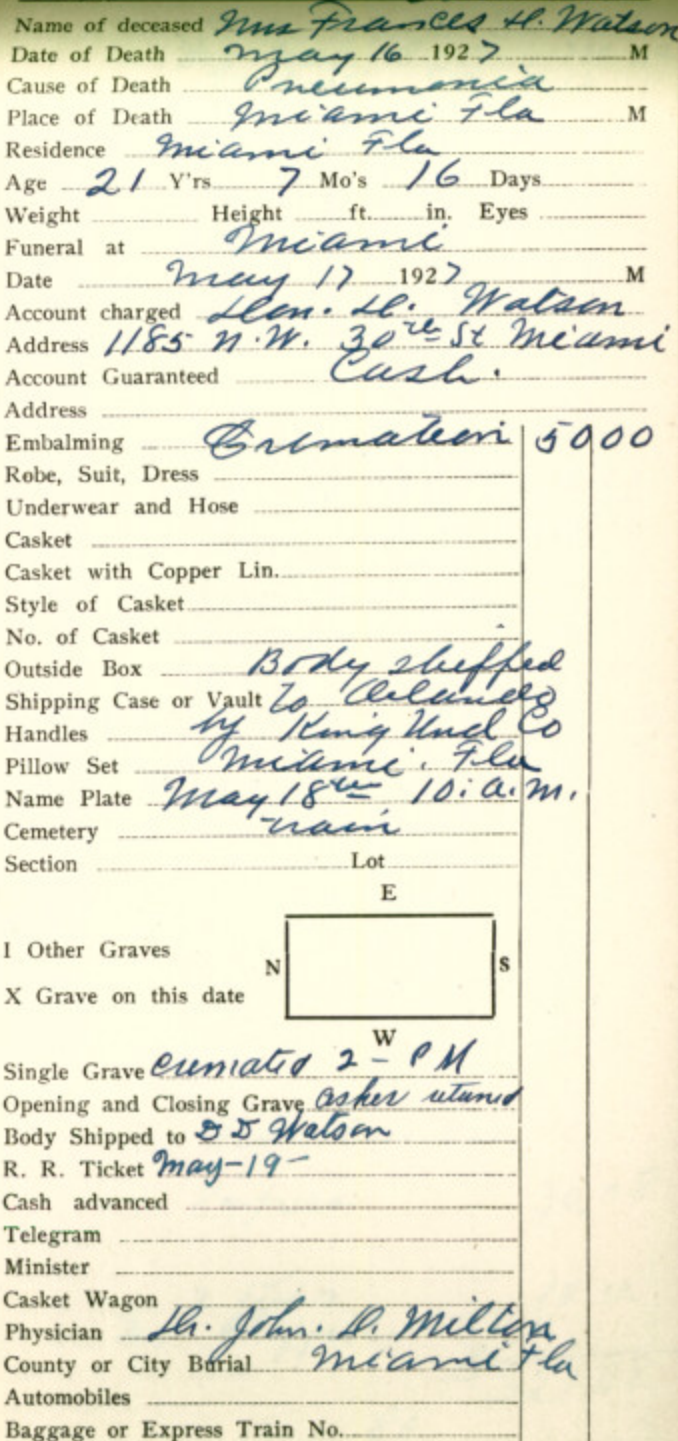 Name of deceased Mrs Frances H. Watson
Date of Death May 16 1927 M
Cause of Death Pneumonia
Place of Death Miami Fla M
Residence Miami Fla
Age 21 Y'rs 7 Mo's 16 Days
Weight Height ft. in. Eyes
Funeral at Miami
Date May 17 1927 M
Account charged Don. D. Watson
Address 1185 N.W. 30 St Miami
Account Guaranteed Cash.
Address
Embalming Cremation 50 00
Robe, Suit, Dress
Underwear and Hose
Casket
Casket with Copper Lin.
Style of Casket
No. of Casket
Outside Box Body shipped
Shipping Case or Vault To Orlando
Handles by King Und Co
Pillow Set Miami. Fla
Name Plate May 18th 10:a.m.
Cemetery train
Section Lot
E
I Other Graves
N S
X Grave on this date
W
Single Grave Cremated 2 - PM
Opening and Closing Grave ashes returned
Body Shipped to D D Watson
R. R. Ticket May-19-
Cash advanced
Telegram
Minister
Casket Wagon
Physician Dr. John. D. Milton
County or City Burial Miami Fla
Automobiles
Baggage or Express Train No.